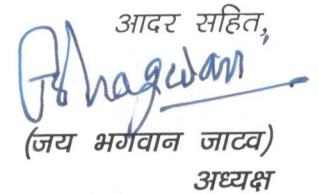 आदर सहित,
Bhagwan
(जय भगवान जाटव)
अध्यक्ष